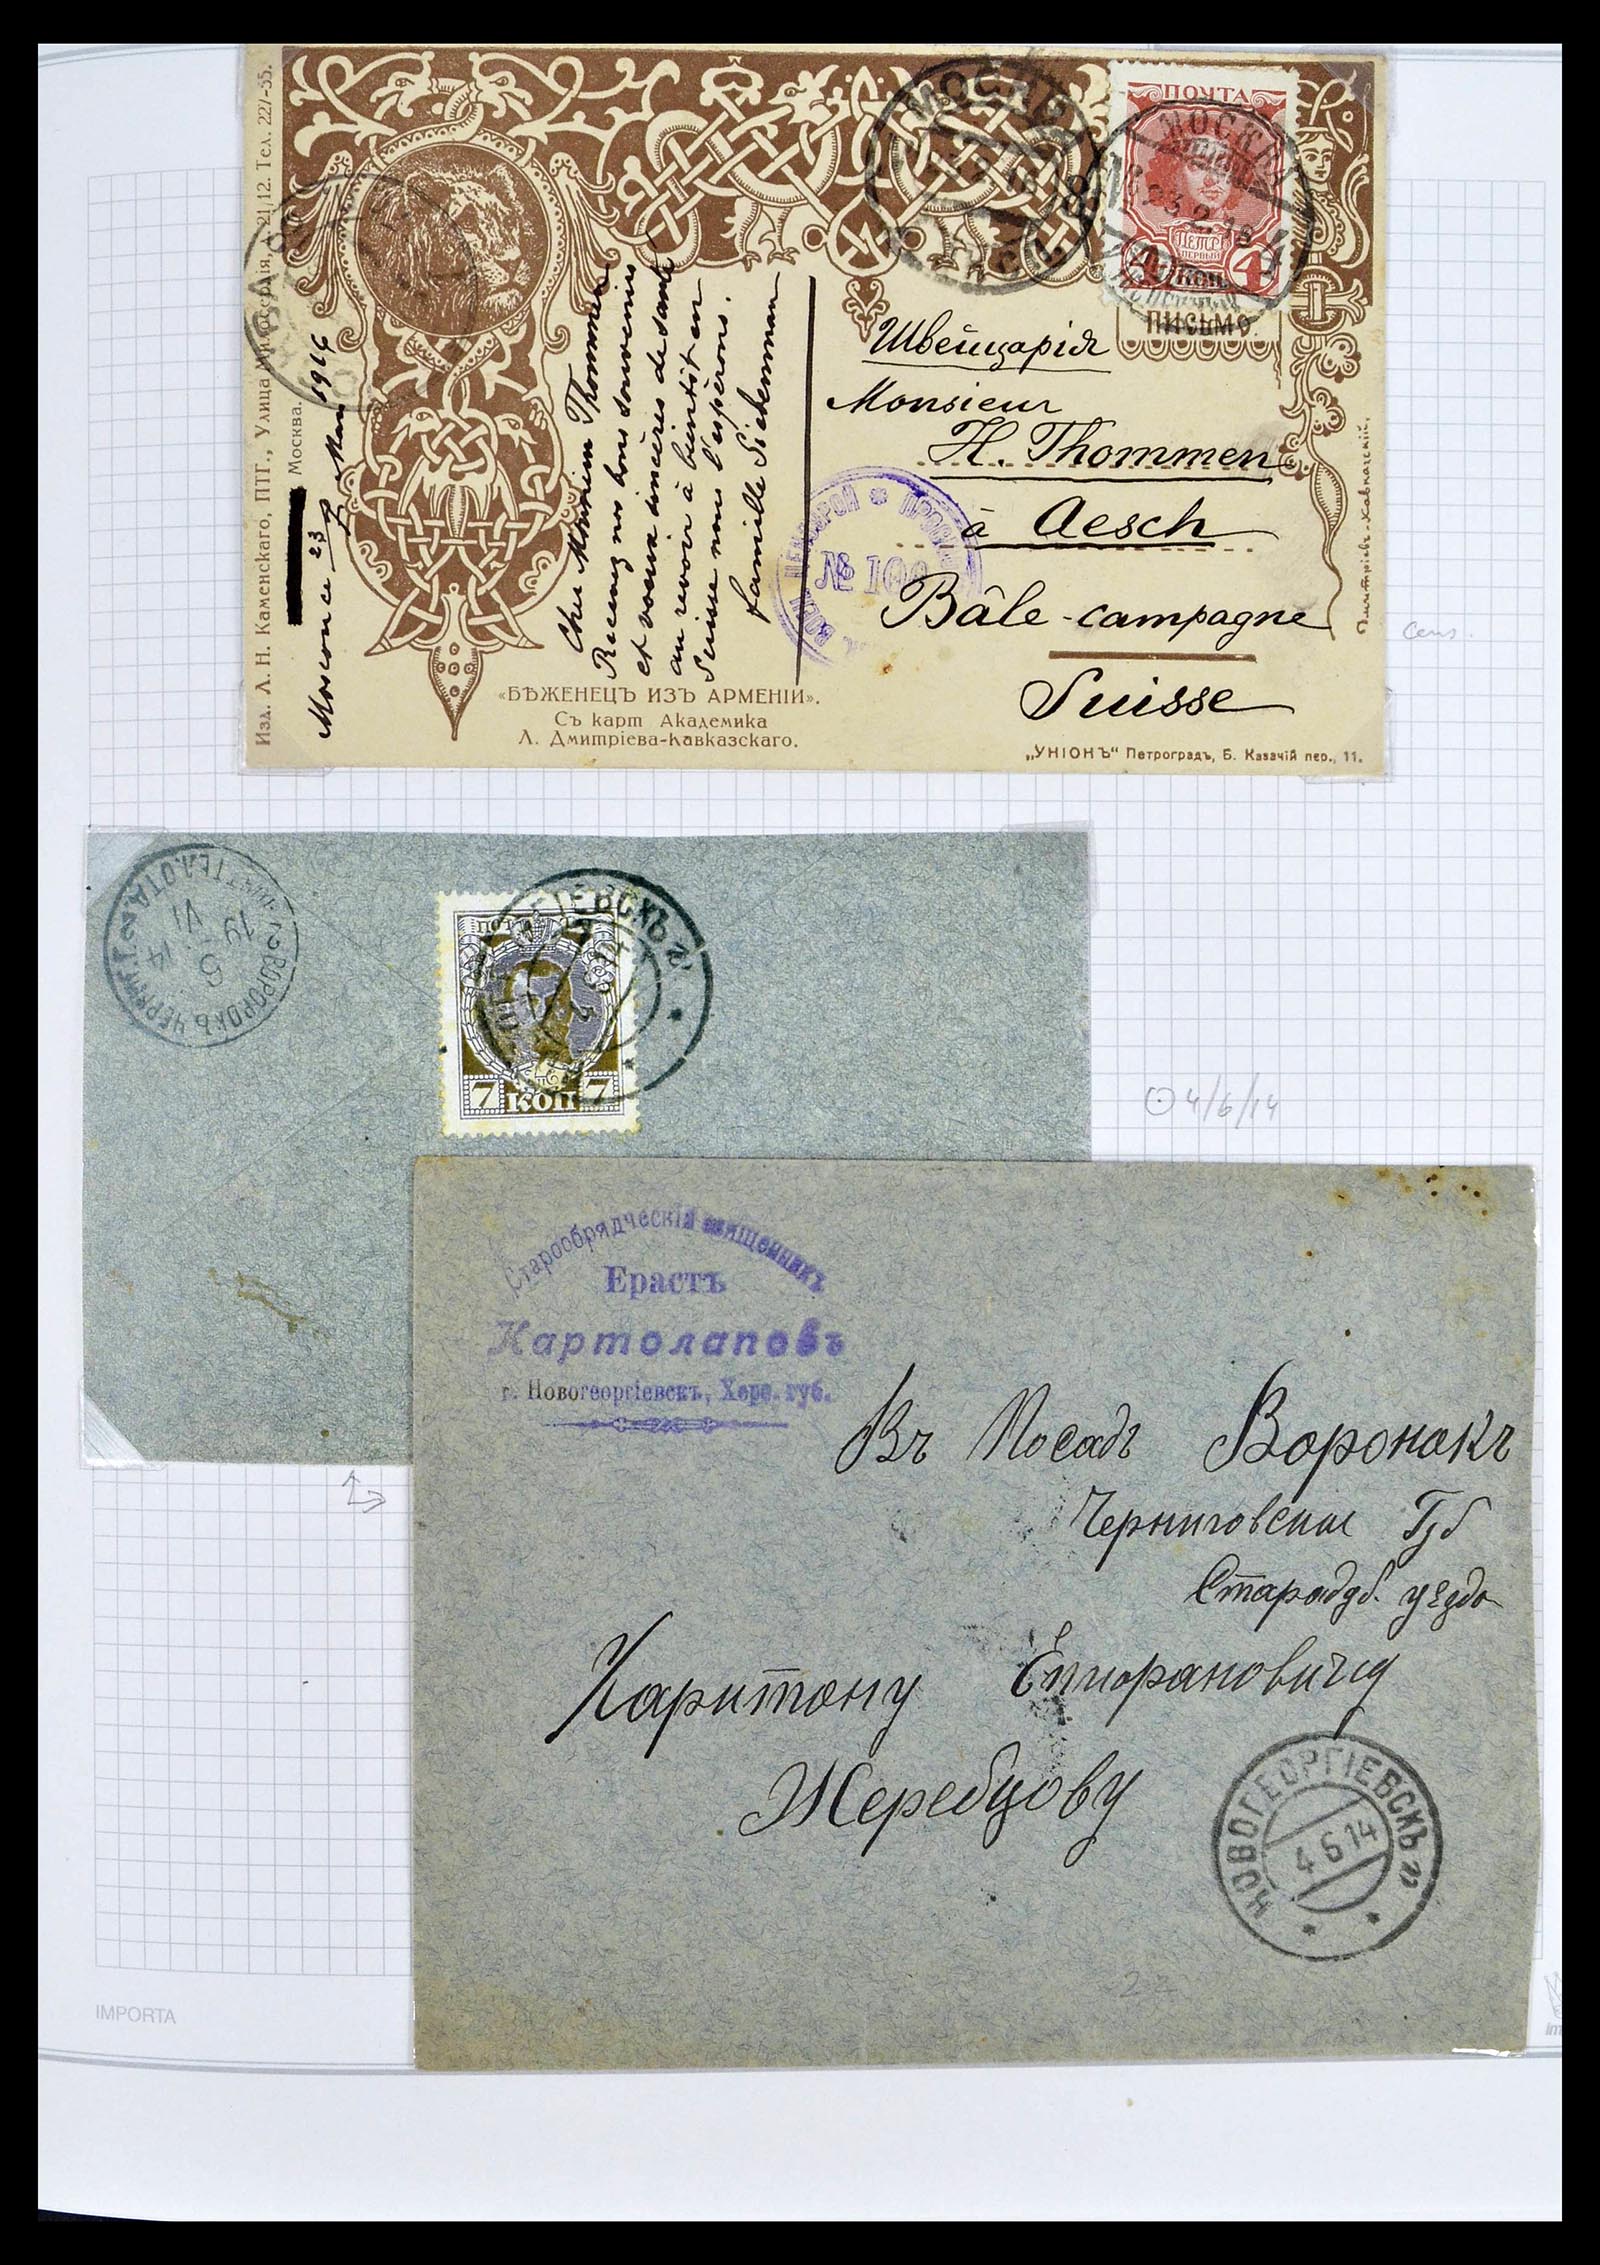 Изд. Л. Н. Каменскаго, ПТГ., Улица Милосердія, д. 21/12. Тел. 227-55.
Москва.
МОСКВА
ПОЧТА
МОСКВА
23.2.16
4 КОП. 4
ПИСЬМО.
Moscou ce 23 Mars 1916
Cher Monsieur Thommen
Recevez nos bons souvenirs
et voeux sincères de santé
au revoir à bientôt en
Suisse nous l'espérons.
famille Siebenmann
Швейцарія
Monsieur
H. Thommen
à Aesch
Bâle-campagne
Suisse
№ 100
Дмитріевъ-Кавказскій.
«БѢЖЕНЕЦЪ ИЗЪ АРМЕНІИ».
Съ карт Академика
Л. Дмитріева-Кавказскаго.
„УНІОНЪ“ Петроградъ, Б. Казачій пер., 11.
cens.
19 VI
5
14
7 КОП 7
4/6/14
Старообрядческій священникъ
Ерастъ
Картолаповъ
г. Новогеоргіевскъ, Херс. губ.
Въ Посадъ Воронокъ
Черниговской Губ
Стародуб. уѣзда
Харитону
Жеребцову
НОВОГЕОРГІЕВСКЪ
4 6 14
22
IMPORTA